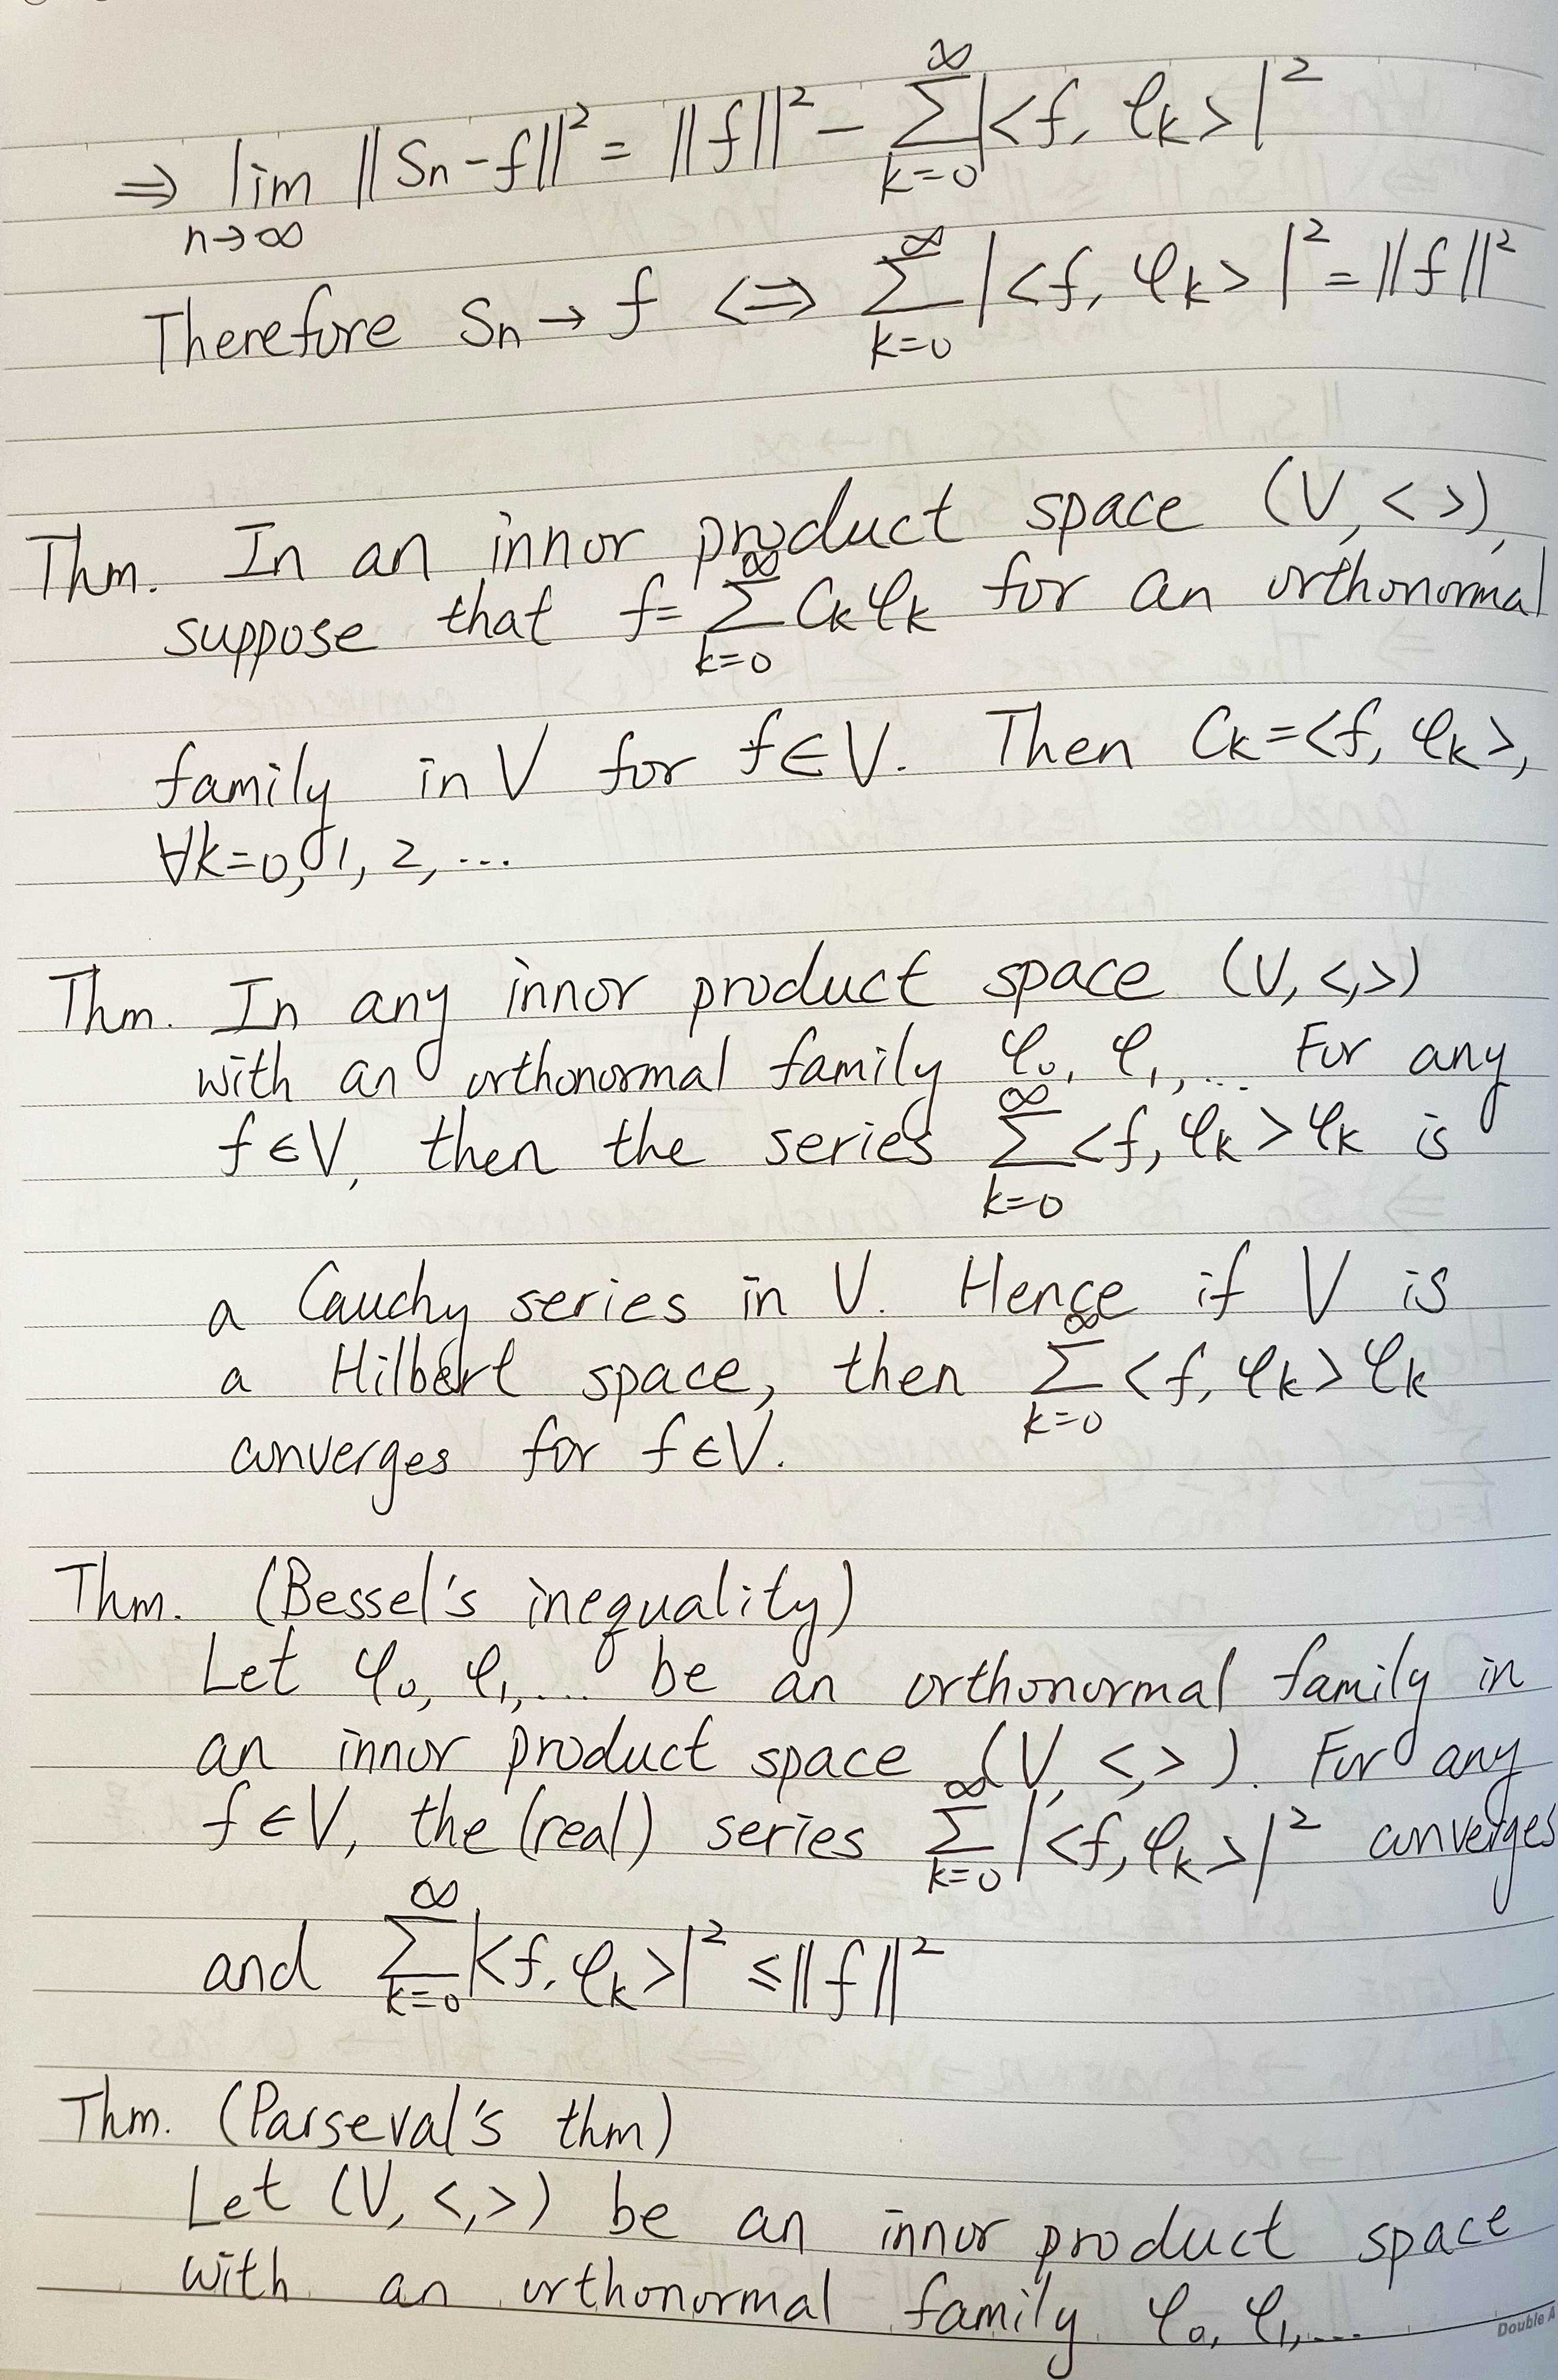 ⇒ lim_{n→∞} ||Sn - f||² = ||f||² - ∑_{k=0}^{∞} |<f, φk>|²
Therefore Sn → f ⇔ ∑_{k=0}^{∞} |<f, φk>|² = ||f||²
Thm. In an innor product space (V, < >),
suppose that f = ∑_{k=0}^{∞} Ckφk for an orthonormal
family in V for f∈V. Then Ck = <f, φk>,
∀k=0, 1, 2, ...
Thm. In any innor product space (V, <,>)
with an orthonormal family φ0, φ1, ... For any
f∈V, then the series ∑_{k=0}^{∞} <f, φk>φk is
a Cauchy series in V. Hence if V is
a Hilbert space, then ∑_{k=0}^{∞} <f, φk>φk
converges for f∈V.
Thm. (Bessel's inequality)
Let φ0, φ1, ... be an orthonormal family in
an innor product space (V, <,>). For any
f∈V, the (real) series ∑_{k=0}^{∞} |<f, φk>|² converges
and ∑_{k=0}^{∞} |<f, φk>|² ≤ ||f||²
Thm. (Parseval's thm)
Let (V, <,>) be an innor product space
with an orthonormal family φ0, φ1, ...
Double A